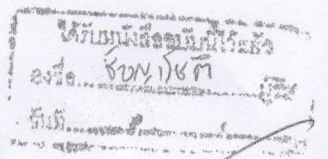 ได้รับหนังสือฉบับนี้ไว้แล้ว
ลงชื่อ ชิษณุโชติ ผู้รับ
วันที่